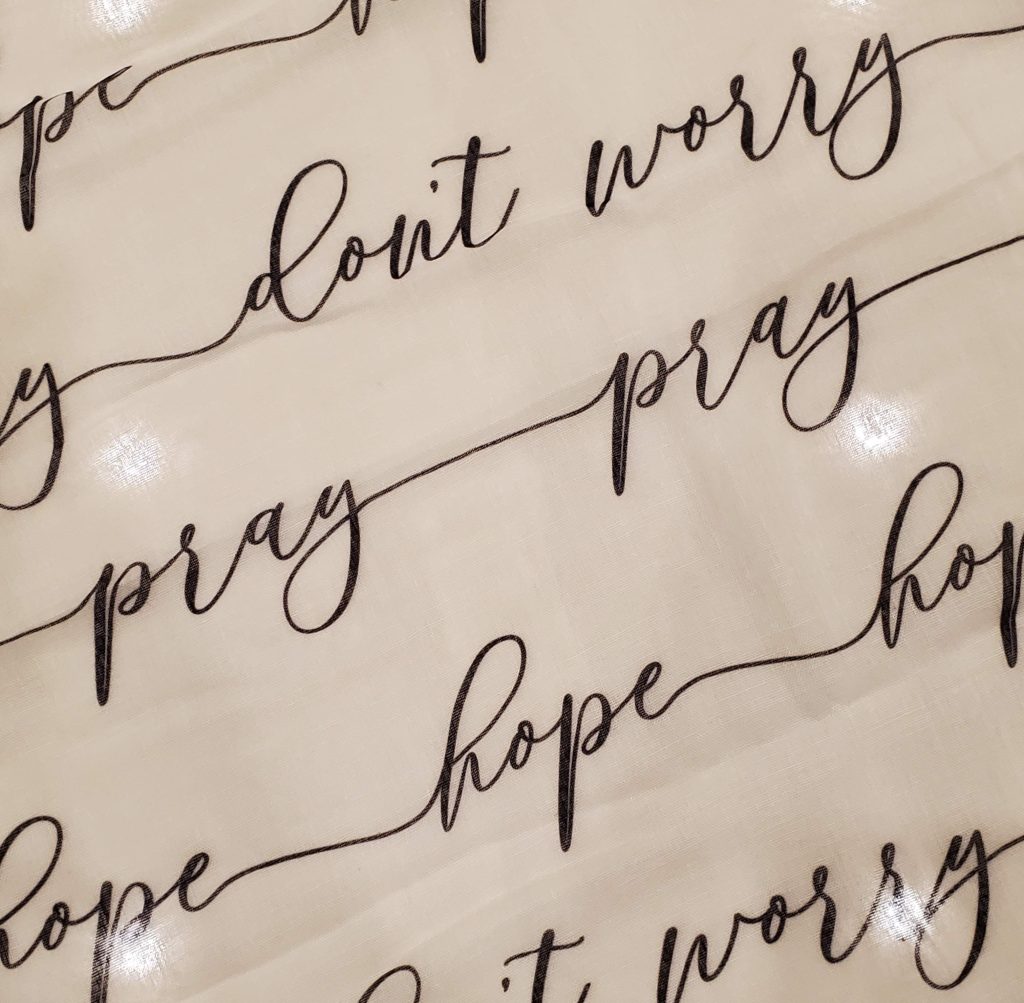 hope
don't worry
pray pray
hope hope hope
don't worry